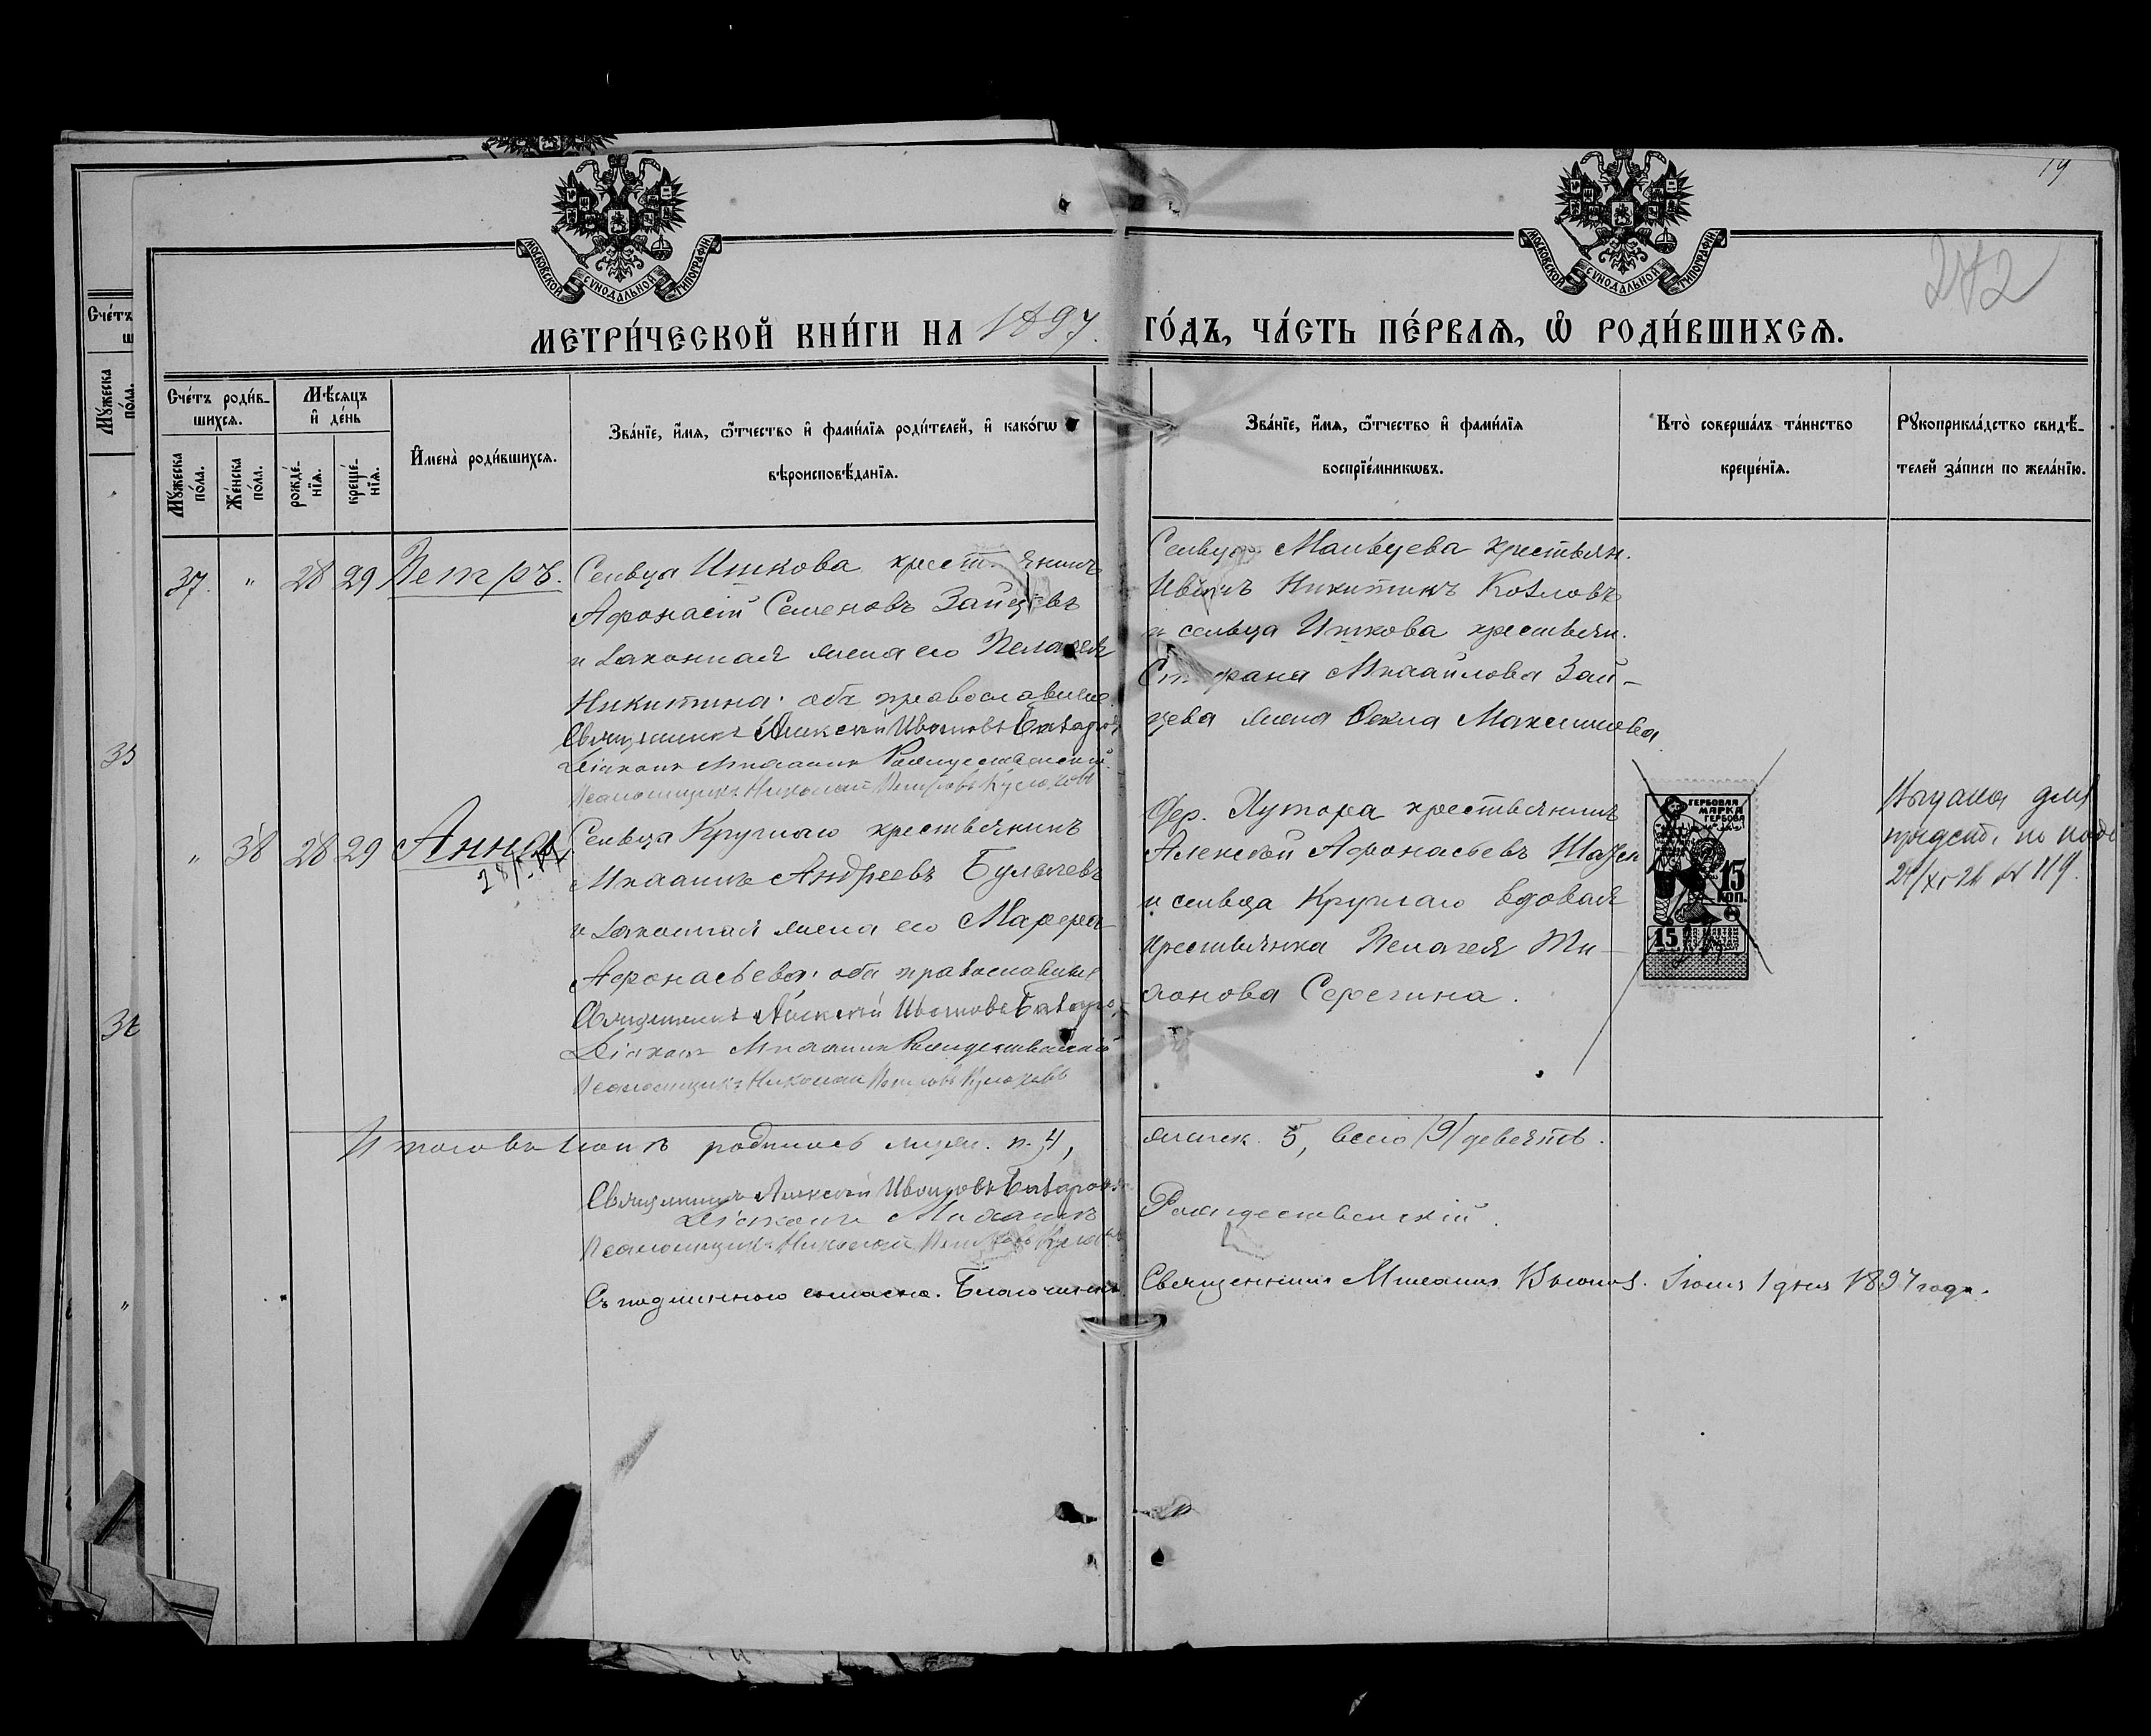 19
282
МОСКОВСКОЙ СѴНОДАЛЬНОЙ ТИПОГРАФІИ
МОСКОВСКОЙ СѴНОДАЛЬНОЙ ТИПОГРАФІИ
МЕТРИ́ЧЕСКОЙ КНИ́ГИ НА 1897. ГО́ДЪ, ЧА́СТЬ ПЕ́РВАѦ, Ѡ҆ РОДИ́ВШИХСѦ.
Сче́тъ роди́в-
шихсѧ.
Мѣ́сѧцъ
и҆ де́нь
Мꙋ́жеска
по́ла.
Же́нска
по́ла.
рожде́-
нїѧ.
креще́-
нїѧ.
И҆мена̀ роди́вшихсѧ.
Зва́нїе, и҆́мѧ, ѻ҆́тчество и҆ фами́лїѧ роди́телей, и҆ како́гѡ
вѣроисповѣ́данїѧ.
Зва́нїе, и҆́мѧ, ѻ҆́тчество и҆ фами́лїѧ
воспрїе́мникѡвъ.
Кто̀ соверша́лъ та́инство
креще́нїѧ.
Рꙋкоприкла́дство свидѣ́-
телей за́писи по жела́нїю.
37. " 28 29 Петръ.
Сельца Ишкова крест янинъ
Афонасій Семеновъ Зайцевъ
и законная жена его Пелагея
Никитина. оба православные.
Священникъ Алексѣй Ивановъ
Діаконъ Михаилъ Рождественскій.
Псаломщикъ Николай Петровъ
Сельца Мальцева крестьян.
Иванъ Никитинъ Козловъ
и сельца Ишкова крестьян.
Стефана Михаилова Зай-
цева жена Фекла Максимова.
" 38 28 29 Анна
Сельца Круглаго крестьянинъ
Михаилъ Андреевъ Булычевъ
и законная жена его Марфа
Афонасьева. оба православные
Священникъ Алексѣй Ивановъ
Діаконъ Михаилъ Рождественскій
Псаломщикъ Николай Петровъ
Дер. Хутора крестьянинъ
Алексѣй Афонасьевъ
и сельца Круглаго вдовая
крестьянка Пелагея Ти-
хонова Серегина.
ГЕРБОВАЯ
МАРКА
15
КОП.
15
Выдана для
предст. по
№ 119.
Итого въ родилось муж. п. 4, женск. 5, всего /9/ девять.
Священникъ Алексѣй Ивановъ
Діаконъ Михаилъ Рождественскій.
Псаломщикъ Николай Петровъ
Съ подлиннымъ согласно. Благочинный Священникъ Михаилъ Іюня 1 дня 1897 года.